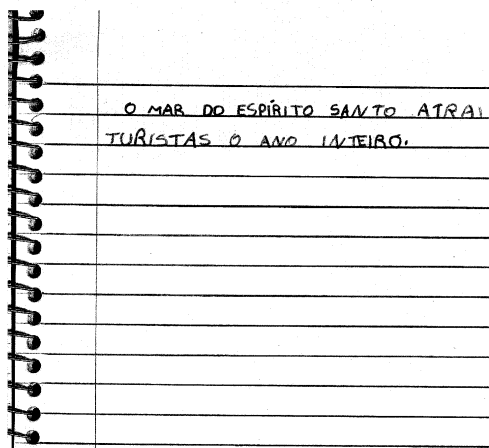 O MAR DO ESPÍRITO SANTO ATRAI
TURISTAS O ANO INTEIRO.